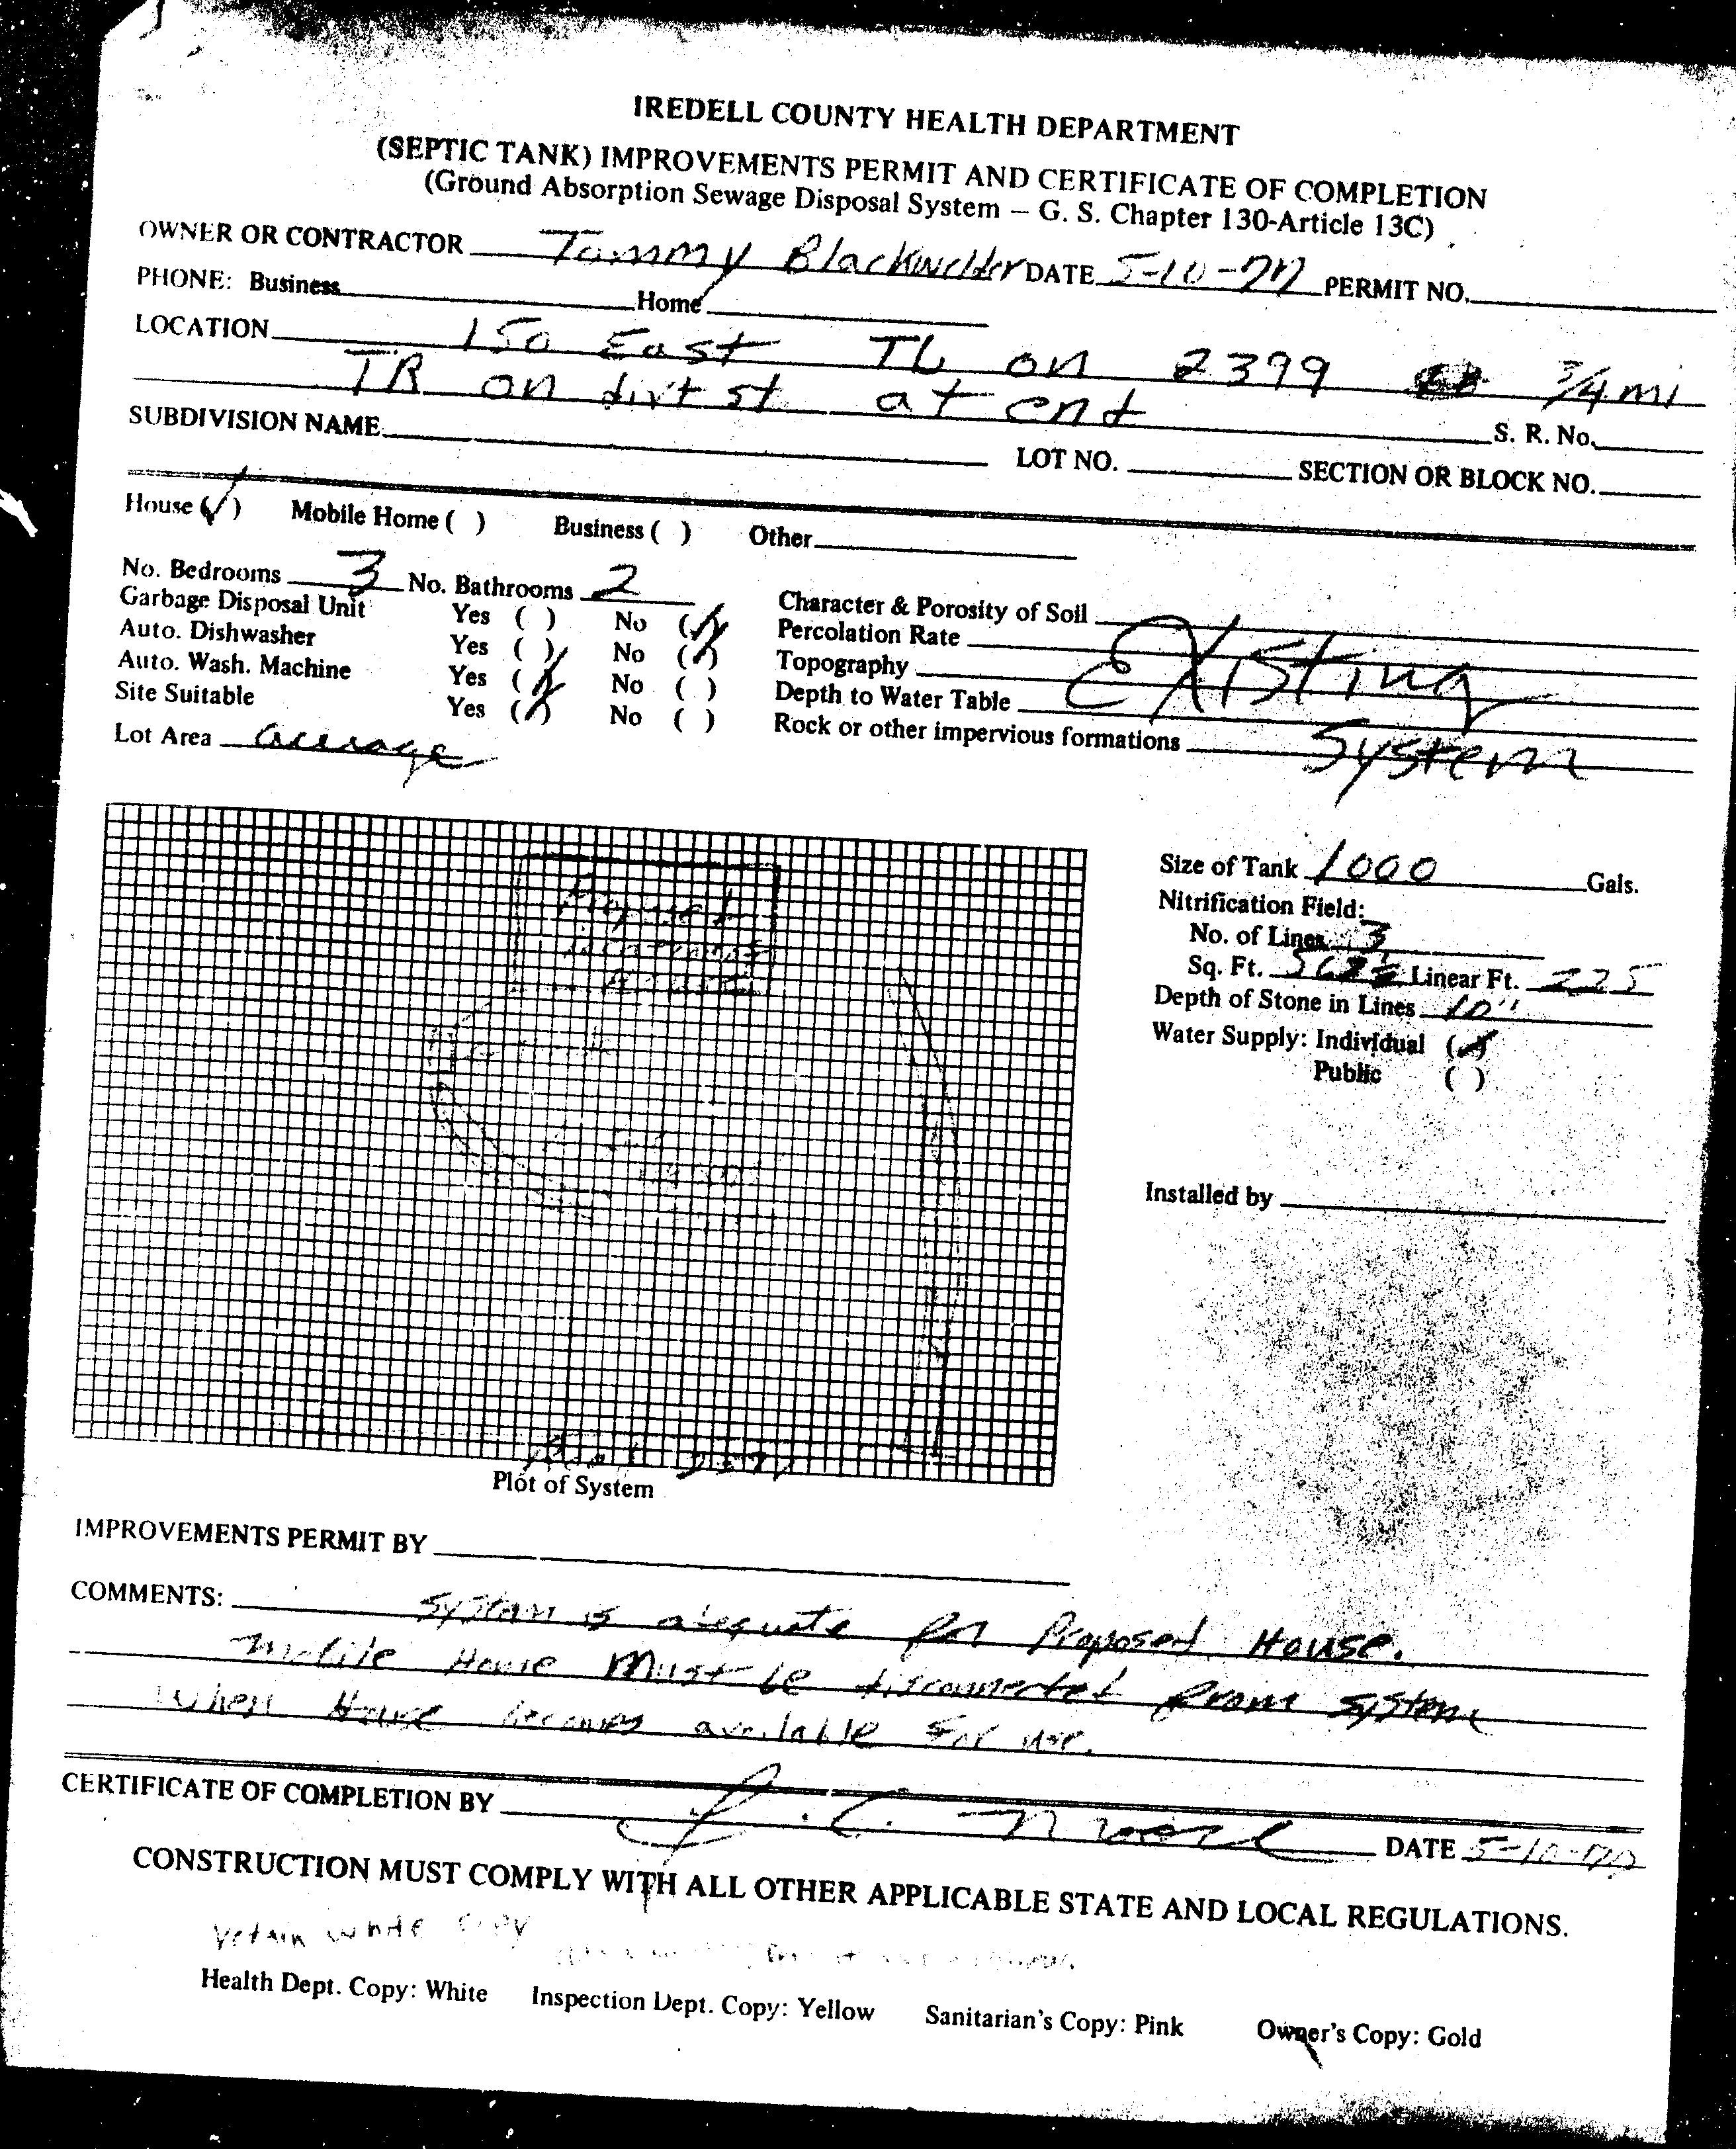 IREDELL COUNTY HEALTH DEPARTMENT
(SEPTIC TANK) IMPROVEMENTS PERMIT AND CERTIFICATE OF COMPLETION
(Ground Absorption Sewage Disposal System – G. S. Chapter 130-Article 13C)
OWNER OR CONTRACTOR Tommy Blackwelder DATE 5-10-77 PERMIT NO.
PHONE: Business Home
LOCATION 150 East TL on 2399 3/4 mi
TR on dirt st at end S. R. No.
SUBDIVISION NAME LOT NO. SECTION OR BLOCK NO.
House (✓) Mobile Home ( ) Business ( ) Other
No. Bedrooms 3 No. Bathrooms 2
Garbage Disposal Unit Yes ( ) No (✓)
Auto. Dishwasher Yes ( ) No (✓)
Auto. Wash. Machine Yes (✓) No ( )
Site Suitable Yes (✓) No ( )
Lot Area acerage
Character & Porosity of Soil
Percolation Rate
Topography Existing
Depth to Water Table
Rock or other impervious formations System
Size of Tank 1000 Gals.
Nitrification Field:
No. of Lines 3
Sq. Ft. Linear Ft. 225
Depth of Stone in Lines 10"
Water Supply: Individual (✓)
Public ( )
Installed by
Plot of System
IMPROVEMENTS PERMIT BY
COMMENTS: System is adequate for Proposed House.
Mobile Home Must be disconnected from system
When House becomes available for use.
CERTIFICATE OF COMPLETION BY J. C. DATE 5-10-77
CONSTRUCTION MUST COMPLY WITH ALL OTHER APPLICABLE STATE AND LOCAL REGULATIONS.
retain white copy
Health Dept. Copy: White Inspection Dept. Copy: Yellow Sanitarian's Copy: Pink Owner's Copy: Gold